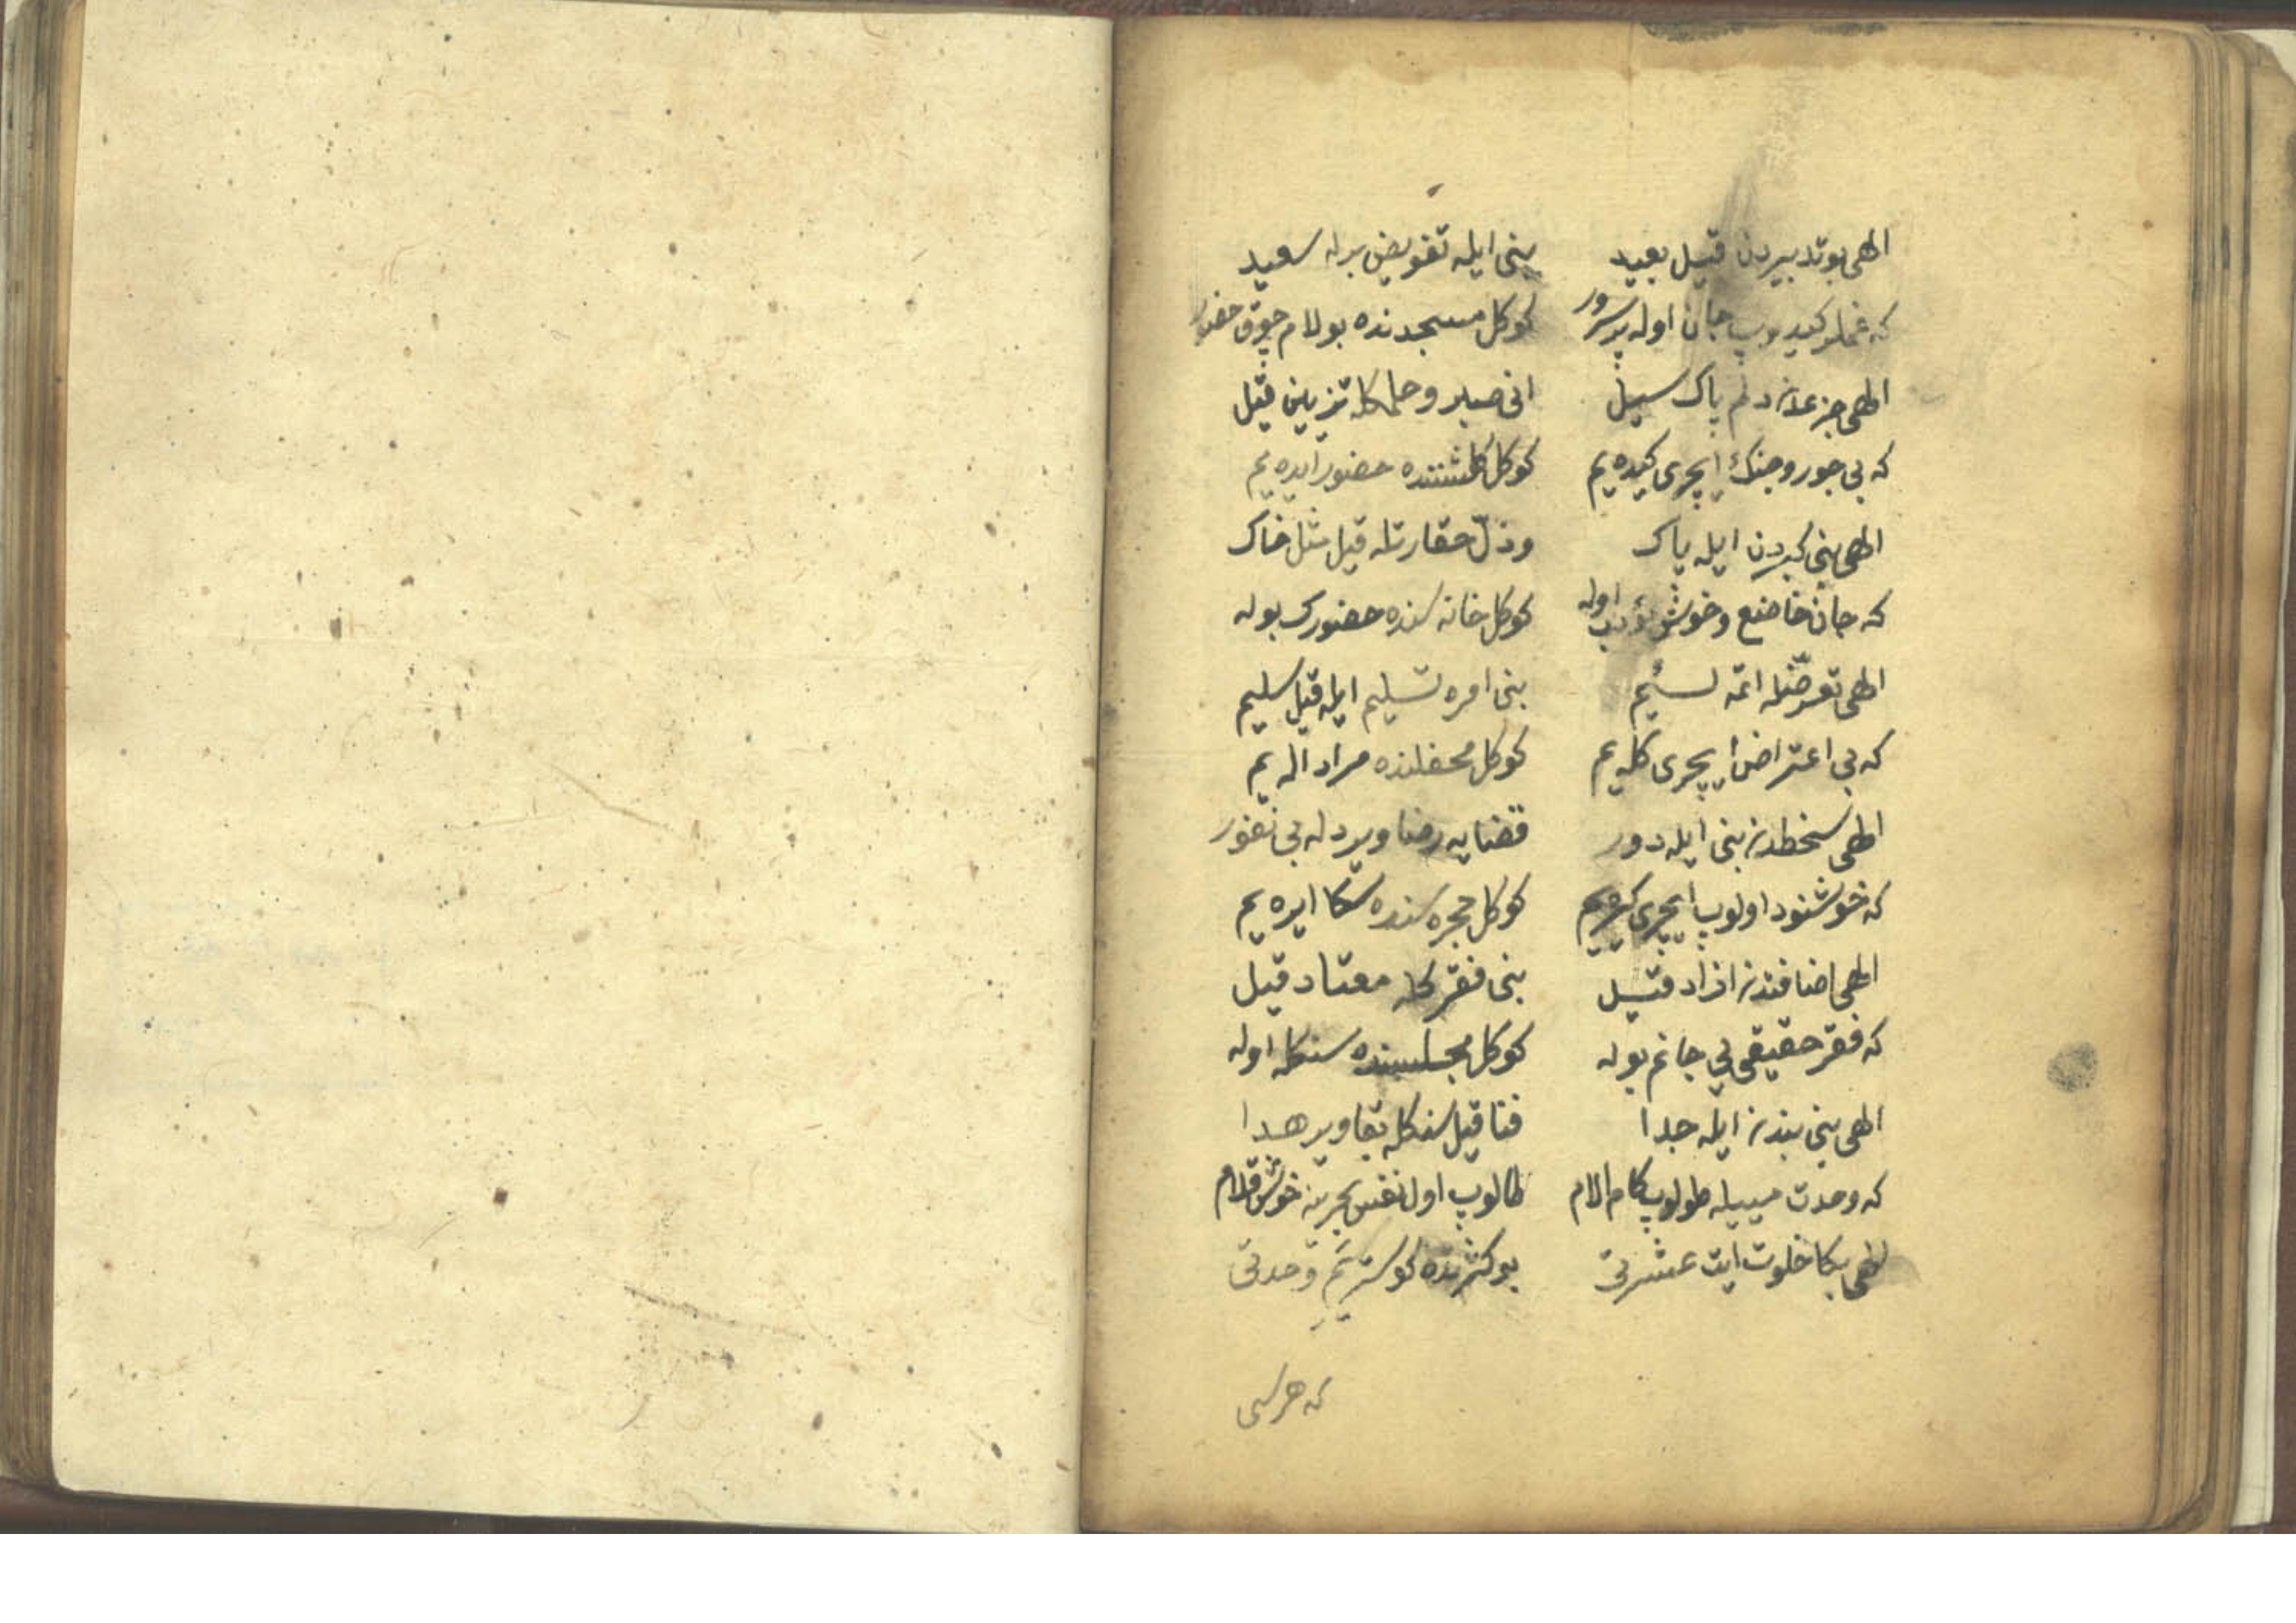 الهی بو تدبیردن قیل بعید بنی ایله تفویض برله سعید
که غملر کیدوب جان اوله پر سرور کوکل مسجدنده بولام چوق حضور
الهی جزعدن دلم پاک سیل انی صبر و حلمکله تزیین قیل
که بی جور و جنک ایچری کیده یم کوکل کلشننده حضور ایده یم
الهی بنی کبردن ایله پاک و ذل حقارتله قیل مثل خاک
که جان خاضع و خوش مؤدب اوله کوکل خانه سنده حضورک بوله
الهی تعرضله اتمه لئیم بنی امره تسلیم ایله قیل سلیم
که بی اعتراض ایچری کله یم کوکل محفلنده مراد اله یم
الهی سخطدن بنی ایله دور قضایه رضا ویر دله بی نفور
که خوشنود اولوب ایچری کیره یم کوکل حجره سنده سکا ایره یم
الهی اضافتدن ازاد قیل بنی فقر کله معتاد قیل
که فقر حقیقی یی جانم بوله کوکل مجلسنده سنکله اوله
الهی بنی بندن ایله جدا فنا قیل سنکله بقا ویر هدا
که وحدت مییله طولوب کام الام طالوب اول نفس بحرینه خوش قلام
الهی بکا خلوت ایت عشرتی بو کثرتده کوستر یم وحدتی
که هر سی